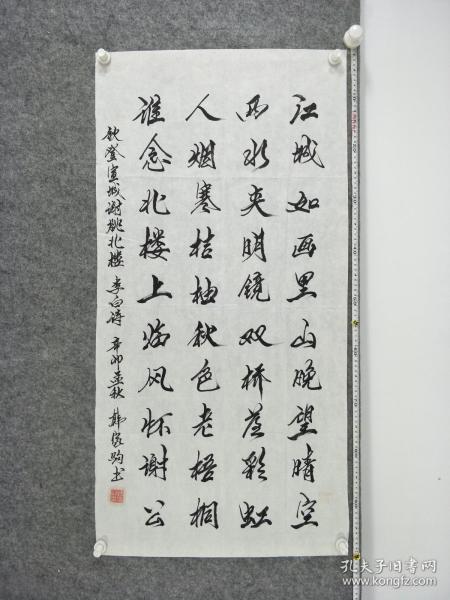 江城如画里山晚望晴空
两水夹明镜双桥落彩虹
人烟寒桔柚秋色老梧桐
谁念北楼上临风怀谢公
秋登宣城谢朓北楼 李白诗 辛卯孟秋 韩家驹书
孔夫子旧书网
www.kongfz.com